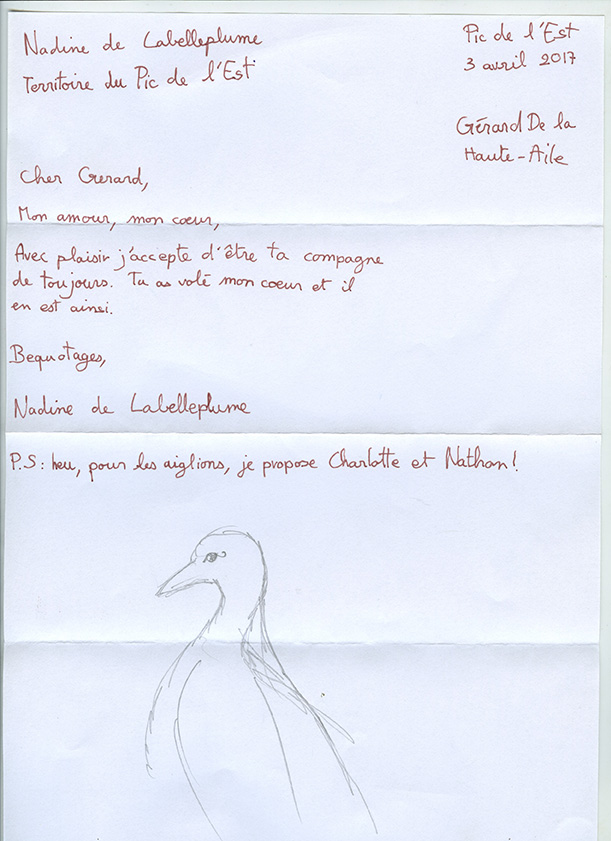 Nadine de Labelleplume
Territoire du Pic de l'Est
Pic de l'Est
3 avril 2017
Gérard De la
Haute-Aile
Cher Gerard,
Mon amour, mon cœur,
Avec plaisir j'accepte d'être ta compagne
de toujours. Tu as volé mon cœur et il
en est ainsi.
Bequotages,
Nadine de Labelleplume
P.S: heu, pour les aiglions, je propose Charlotte et Nathan!